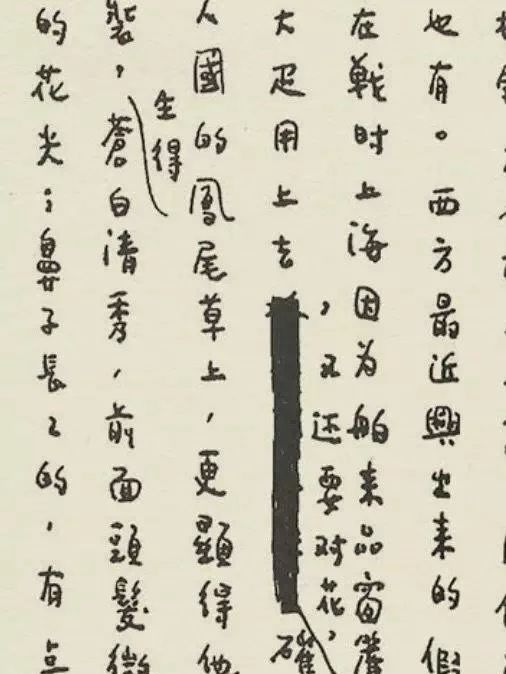 也有。西方最近興出来的假
在戰时上海因为舶来品窗簾
大疋用上去
，又还要对花，
確
人國的鳳尾草上，更顯得他
裝，生得蒼白清秀，前面頭髮微
的花尖；鼻子長々的，有点